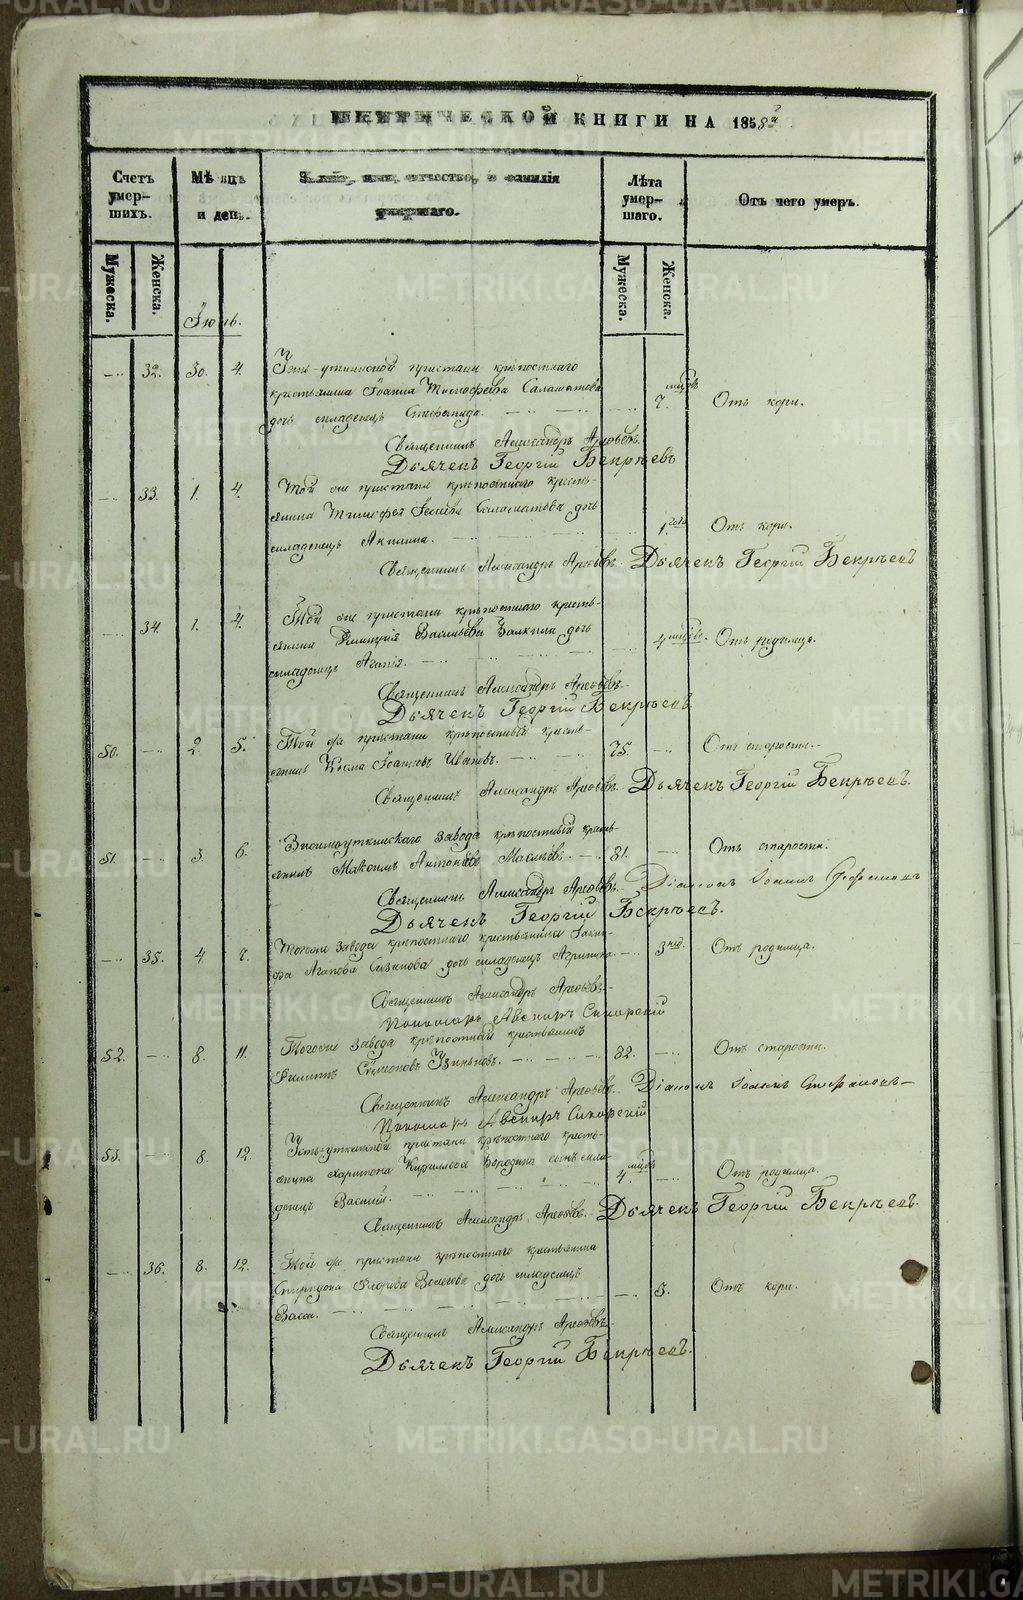 МЕТРИЧЕСКОЙ КНИГИ НА 1858й
Счетъ умер-шихъ.
Мѣсяцъ и день.
Званіе, имя, отчество, и фамилія умершаго.
Лѣта умер-шаго.
Отъ чего умеръ.
Мужеска.
Женска.
Мужеска.
Женска.
Іюнь.
32. 30. 4. Усть-уткинской пристани крѣпостнаго
крестьянина Іоанна Тимофеева Саламатова
дочь младенецъ Стефанида. 7. мцовъ Отъ кори.
Священникъ Александръ Арефьевъ.
Дьячекъ Георгій Бекрѣевъ
33. 1. 4. Той же пристани крѣпостнаго кресть-
янина Тимофея Саламатова дочь
младенецъ Акилина. 1. года Отъ кори.
Священникъ Александръ Арефьевъ. Дьячекъ Георгій Бекрѣевъ
34. 1. 4. Той же пристани крѣпостнаго кресть-
янина Димитрія Васильева дочь
младенецъ Агапія. 4 мцовъ. Отъ родимца.
Священникъ Александръ Арефьевъ.
Дьячекъ Георгій Бекрѣевъ
50. 2. 5. Той же пристани крѣпостный кресть-
янинъ Косма Іоанновъ Ивановъ. 75. Отъ старости.
Священникъ Александръ Арефьевъ. Дьячекъ Георгій Бекрѣевъ.
51. 3. 6. завода крѣпостный кресть-
янинъ Максимъ Антоновъ 81. Отъ старости.
Священникъ Александръ Арефьевъ. Діаконъ Іоаннъ Стефановъ
Дьячекъ Георгій Бекрѣевъ.
35. 4 7. Тогоже завода крѣпостнаго крестьянина
Агапова Сизикова дочь младенецъ Агрипина. 3 нед. Отъ родимца.
Священникъ Александръ Арефьевъ.
Пономарь Авениръ Сикорскій
52. 8. 11. Тогоже завода крѣпостный крестьянинъ
Филиппъ Симеоновъ 82. Отъ старости.
Священникъ Александръ Арефьевъ. Діаконъ Іоаннъ Стефановъ
Пономарь Авениръ Сикорскій
53. 8. 12. Усть-уткинской пристани крѣпостнаго кресть-
янина Харитона Кириллова Бородина сынъ мла-
денецъ Василій. 4. мцовъ Отъ родимца.
Священникъ Александръ Арефьевъ. Дьячекъ Георгій Бекрѣевъ.
36. 8. 12. Той же пристани крѣпостнаго крестьянина
Спиридона дочь младенецъ
Васса. 3. Отъ кори.
Священникъ Александръ Арефьевъ.
Дьячекъ Георгій Бекрѣевъ.
METRIKI.GASO-URAL.RU